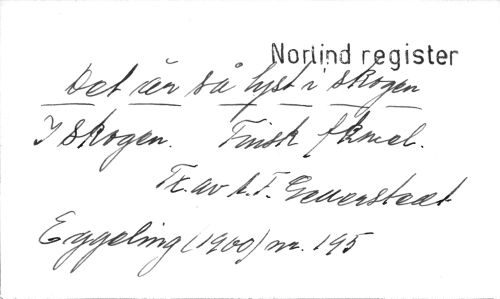 Norlind register
Det är så tyst i skogen
I skogen. Finsk fkmel.
Tx. av A. T. Gellerstedt
Eggeling (1900) nr. 195